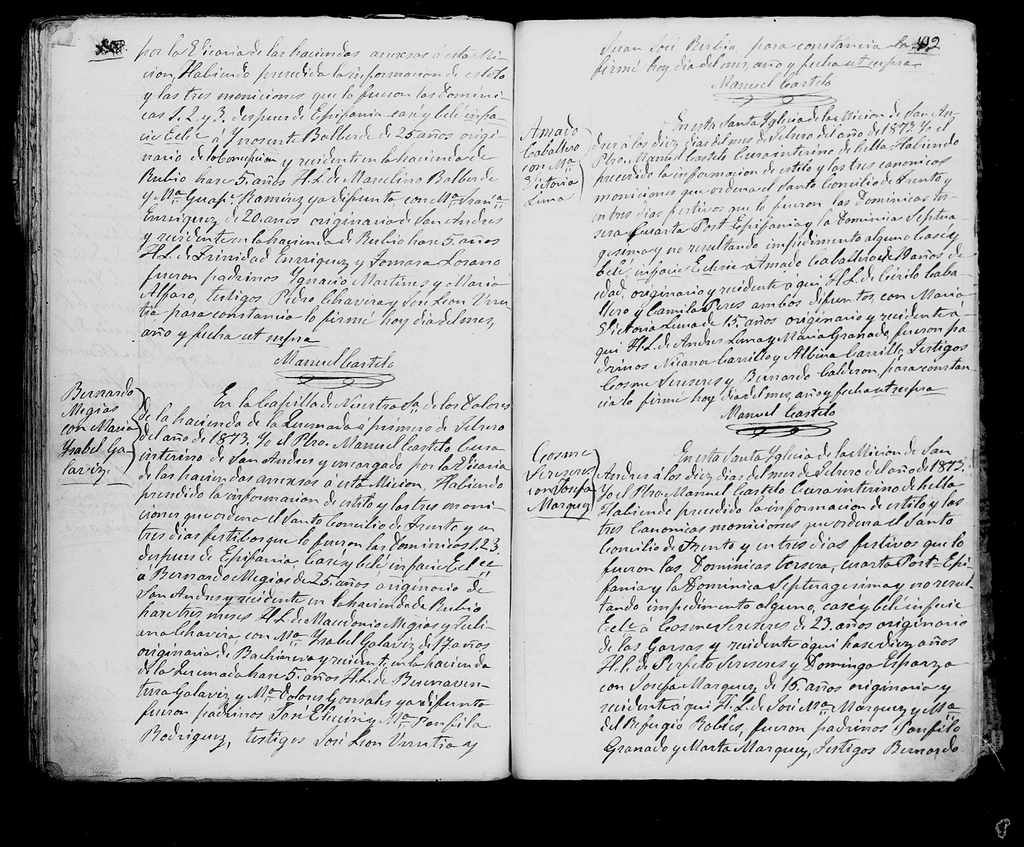 por la Vicaria de las haciendas anexas á esta Mi-
cion, Habiendo presedido la informacion de estilo
y las tres moniciones que lo fueron las domini-
cas 1. 2. y 3. despues de Epifania casé y belé infa-
cie Eclᵉ á Ynosente Balberde de 25 años origi-
nario de la Concepcion y recidente en la hacienda de
Rubio hase 5. años H. L. de Marcelino Balberde
y Mᵃ Guapᵉ Ramirez ya difunta con Mᵃ Franᶜᵃ
Enrriquez de 20 años originaria de San Andres
y recidente en la hacienda de Rubio hase 5. años
H. L. de Trinidad Enrriquez y Tomasa Losano
fueron padrinos Ygnacio Martines y Maria
Alfaro, testigos Pedro Chavera y José Leon Urru-
tia para constancia lo firmé hoy dia del mes,
año y fecha ut supra
Manuel Castelo
Bernardo
Megias
con Maria
Ysabel Ga-
laviz.
En la Capilla de Nuestra Sᵃ de los Dolores
de la hacienda de la Quemada á primero de Febrero
del año de 1873. Yo el Pbro. Manuel Castelo Cura
interino de San Andres y encargado por la Vicaria
de las haciendas anexas a esta Micion, Habiendo
presedido la informacion de estilo y las tres moni-
ciones que ordena el Santo Concilio de Trento y en
tres dias festibos que lo fueron las Dominicas 1. 2. 3.
despues de Epifania Casé y belé infacie Eclᶜᵉ
á Bernardo Megias de 25. años originario de
San Andres y recidente en la hacienda de Rubio
hase tres meses H. L. de Macedonio Megias y Juli-
ana Chavera con Mᵃ Ysabel Galaviz de 17 años
originaria de Bachineva y recidente en la hacienda
de la Quemada hase 5. años H. L. de Buenaven-
tura Galaviz y Mᵃ Dolores Gonsales ya difunta
fueron padrinos José y Mᵃ Ponfila
Rodriguez, testigos José Leon Urrutia y
192
Juan José Rubia, para constancia lo
firmé hoy dia del mes, año y fecha ut supra
Manuel Castelo
Amado
Caballero
con Mᵃ
Victoria
Luna
En esta Santa Yglecia de la Micion de San An-
dres á los diez dias del mes de Febrero del año de 1873. Yo el
Pbro. Manuel Castelo Cura interino de ella Habiendo
presedido la informacion de estilo y las tres canonicas
moniciones que ordena el Santo Concilio de Trento y
en tres dias festivos que lo fueron las Dominicas ter-
sera Cuarta Post Epifania y la Dominica Septua-
gesima y no resultando impedimento alguno Casé y
belé infacie Eclesie á Amado Caballero de 19 años de
edad. originario y recidente aqui H. L. de Cirilo Caba-
llero y Camila Peres ambos difuntos, con Maria
Victoria Luna de 15. años originario y recidente a-
qui H. L. de Andres Luna y Maria Granado, fueron pa-
drinos Nicanor Carrillo y Albina Carrillo, Testigos
Cosme Sereseres y Bernardo Calderon, para constan-
cia lo firmé hoy dia del mes, año y fecha ut supra
Manuel Castelo
Cosme
Sereseres
con Josefa
Marquez
En esta Santa Yglecia de la Micion de San
Andres á los diez dias del mes de Febrero del año de 1873.
Yo el Pbro. Manuel Castelo Cura interino de ella
Habiendo presedido la informacion de estilo y las
tres Canonicas moniciones que ordena el Santo
Concilio de Trento y en tres dias festivos que lo
fueron las Dominicas tersera, Cuarta Post-Epi-
fania y la Dominica Septuagesima y no resul-
tando impedimento alguno, casé y belé infacie
Eclᵉ á Cosme Sereseres de 23. años originario
de las Garsas y recidente aqui hase diez años
H. L. de Perfeto Sereseres y Dominga Esparza
con Josefa Marquez de 16. años originaria y
recidente aqui H. L. de José Mᵃ Marquez y Mᵃ
del Refugio Robles, fueron padrinos Ponfilo
Granado y Marta Marquez, Testigos Bernardo